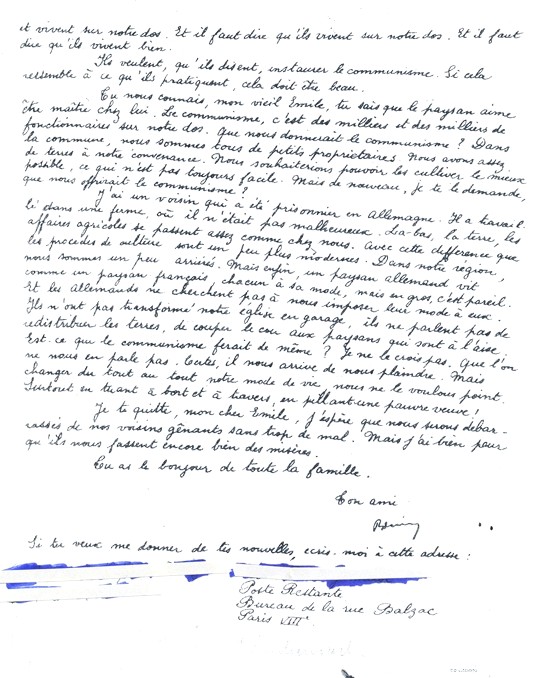 et vivent sur notre dos. Et il faut dire qu'ils vivent sur notre dos. Et il faut
dire qu'ils vivent bien.
Ils veulent, qu'ils disent, instaurer le communisme. Si cela
ressemble à ce qu'ils pratiquent, cela doit être beau.
Tu nous connais, mon vieil Emile, tu sais que le paysan aime
être maître chez lui. Le communisme, c'est des milliers et des milliers de
fonctionnaires sur notre dos. Que nous donnerait le communisme ? Dans
la commune, nous sommes tous de petits propriétaires. Nous avons assez
de terres à notre convenance. Nous souhaiterions pouvoir les cultiver le mieux
possible, ce qui n'est pas toujours facile. Mais de nouveau, je te le demande,
que nous offrirait le communisme ?
J'ai un voisin qui a été prisonnier en Allemagne. Il a travail-
lé dans une ferme, où il n'était pas malheureux. Là-bas, la terre, les
affaires agricoles se passent assez comme chez nous. Avec cette différence que
les procédés de culture sont un peu plus modernes. Dans notre région,
nous sommes un peu arriérés. Mais enfin, un paysan allemand vit
comme un paysan français, chacun à sa mode, mais en gros, c'est pareil.
Et les allemands ne cherchent pas à nous imposer leur mode à eux.
Ils n'ont pas transformé notre église en garage, ils ne parlent pas de
redistribuer les terres, de couper le cou aux paysans qui sont à l'aise.
Est-ce que le communisme ferait de même ? Je ne le crois pas. Que l'on
ne nous en parle pas. Certes, il nous arrive de nous plaindre. Mais
changer du tout au tout notre mode de vie, nous ne le voulons point.
Surtout en tuant à tort et à travers, en pillant une pauvre veuve !
Je te quitte, mon cher Emile, j'espère que nous serons débar-
rassés de nos voisins gênants sans trop de mal. Mais j'ai bien peur
qu'ils nous fassent encore bien des misères.
Tu as le bonjour de toute la famille.
Ton ami
Si tu veux me donner de tes nouvelles, écris-moi à cette adresse :
Poste Restante
Bureau de la rue Balzac
Paris VIIIe